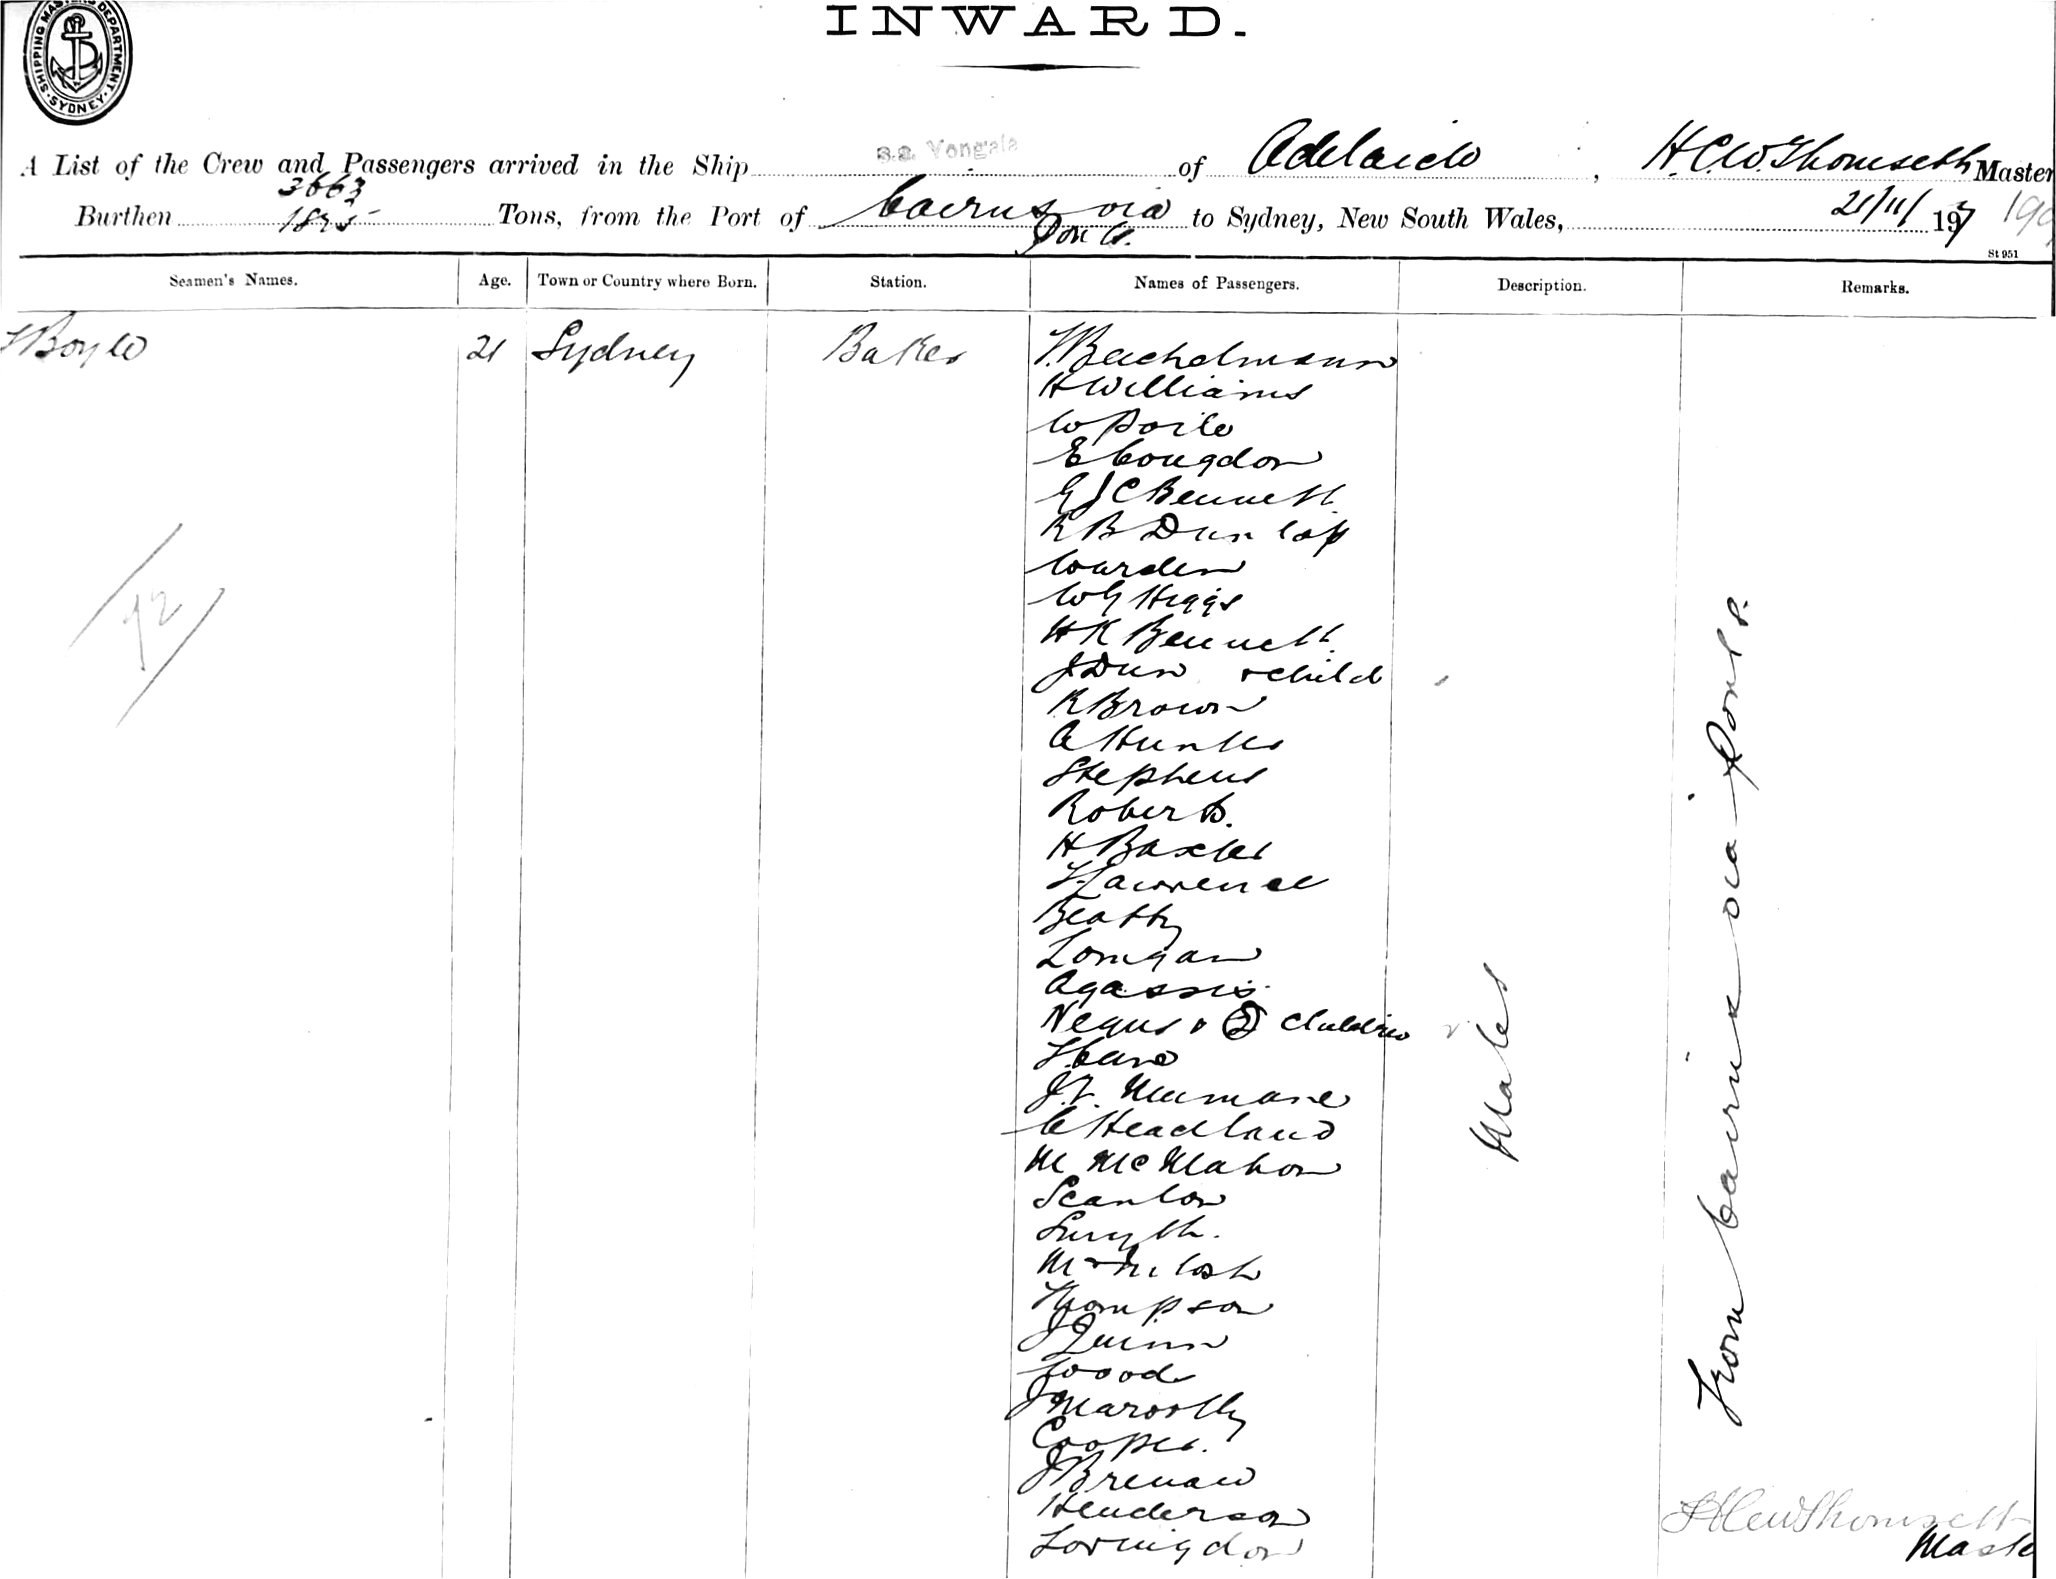 SHIPPING MASTERS DEPARTMENT. SYDNEY.
INWARD.
A List of the Crew and Passengers arrived in the Ship s.s. Yongala of Adelaide, H.C.W. Thomsett Master
Burthen 3663 1825 Tons, from the Port of Cairns via Ports. to Sydney, New South Wales, 21/11/ 197 190
St 951
Seamen's Names. Age. Town or Country where Born. Station. Names of Passengers. Description. Remarks.
Boyle 21 Sydney Baker
H Williams
W Poile
E Congdon
G J C Bennett
R B Dunlop
Warden
W G Higgs
H K Bennett
J Dun & child
R Brown
A Hunter
Stephens
Roberts.
H Baxter
Lawrence
Beatty
Longan
Agassiz
Negus & 2 children
J.V.
C Headland
M McMahon
Scanlon
Smyth.
McIntosh
Thompson
J Quinn
Wood
J
Cooper.
J Brenan
Henderson
Males
From Cairns via Ports.
92
HCW Thomsett
Master